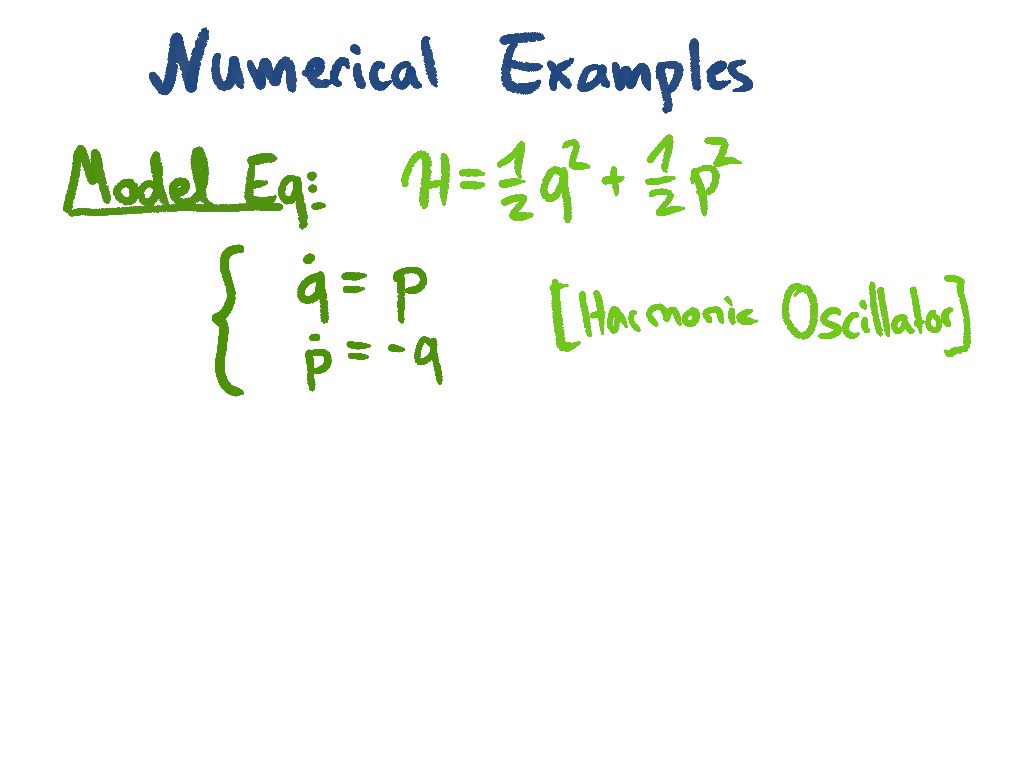 Numerical Examples
Model Eq: H = 1/2 q² + 1/2 p²
{ q̇ = p
ṗ = -q
[Harmonic Oscillator]